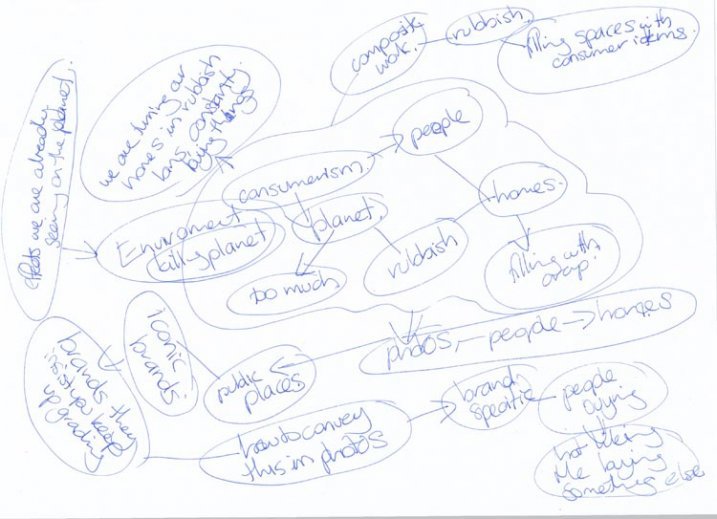 composite
work.
rubbish.
filling spaces with
consumer items.
effects we are already
seeing on the planet.
we are turning our
homes in rubbish
bins, constantly
buying things
people
consumerism.
homes.
planet.
Enviroment
killing planet
rubbish
too much
filling with
crap.
photos, - people -> homes
iconic
brands.
public
places
brands they
insist you keep
upgrading
brand
specific
people
buying
how to convey
this in photos
not liking
the
buying
something else